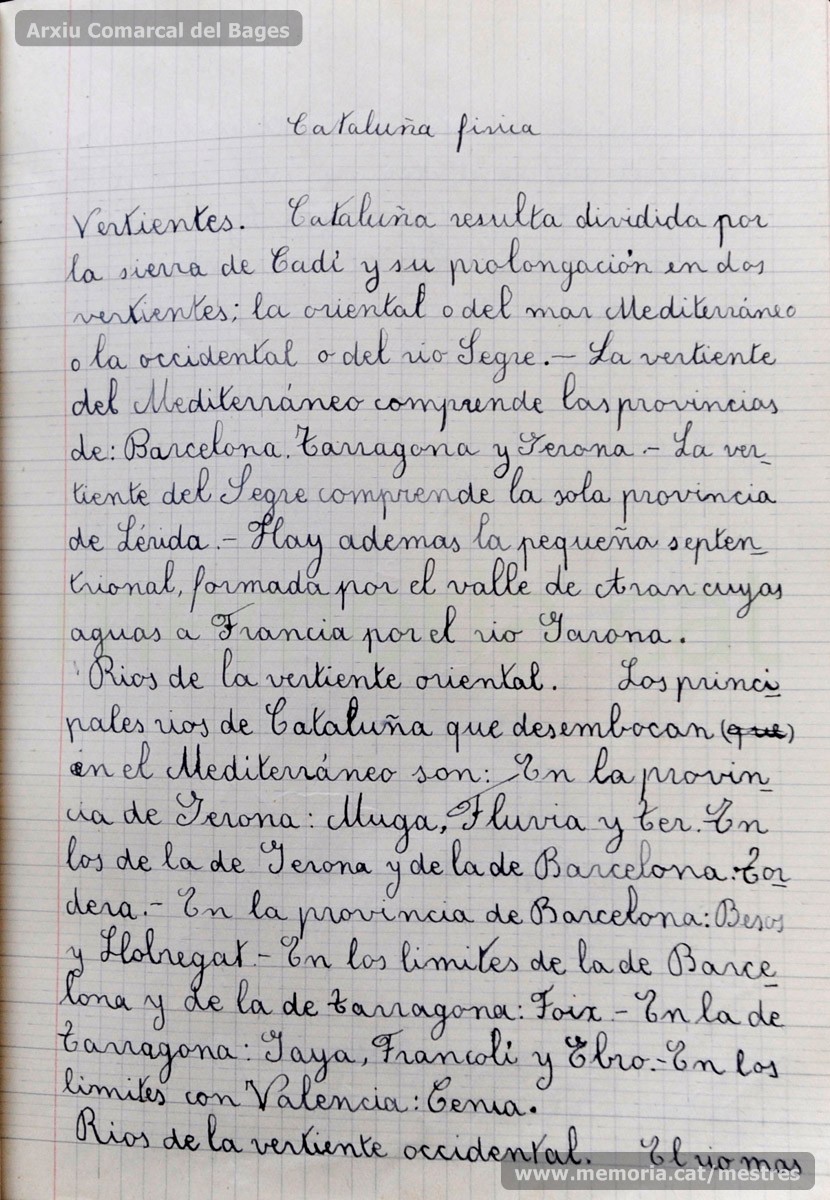 Arxiu Comarcal del Bages
Cataluña fisica
Vertientes. Cataluña resulta dividida por
la sierra de Cadí y su prolongación en dos
vertientes; la oriental o del mar Mediterráneo
o la occidental o del rio Segre.- La vertiente
del Mediterráneo comprende las provincias
de: Barcelona, Tarragona y Gerona.- La ver_
tiente del Segre comprende la sola provincia
de Lérida.- Hay ademas la pequeña septen_
trional, formada por el valle de Aran cuyas
aguas a Francia por el rio Garona.
Rios de la vertiente oriental. Los princi_
pales rios de Cataluña que desembocan (que)
en el Mediterráneo son: En la provin_
cia de Gerona: Muga, Fluvia y Ter. En
los de la de Gerona y de la de Barcelona: Tor_
dera.- En la provincia de Barcelona: Besos
y Llobregat.- En los limites de la de Barce_
lona y de la de Tarragona: Foix.- En la de
Tarragona: Gaya, Francolí y Ebro.- En los
limites con Valencia: Cenia.
Rios de la vertiente occidental. El rio mas
www.memoria.cat/mestres